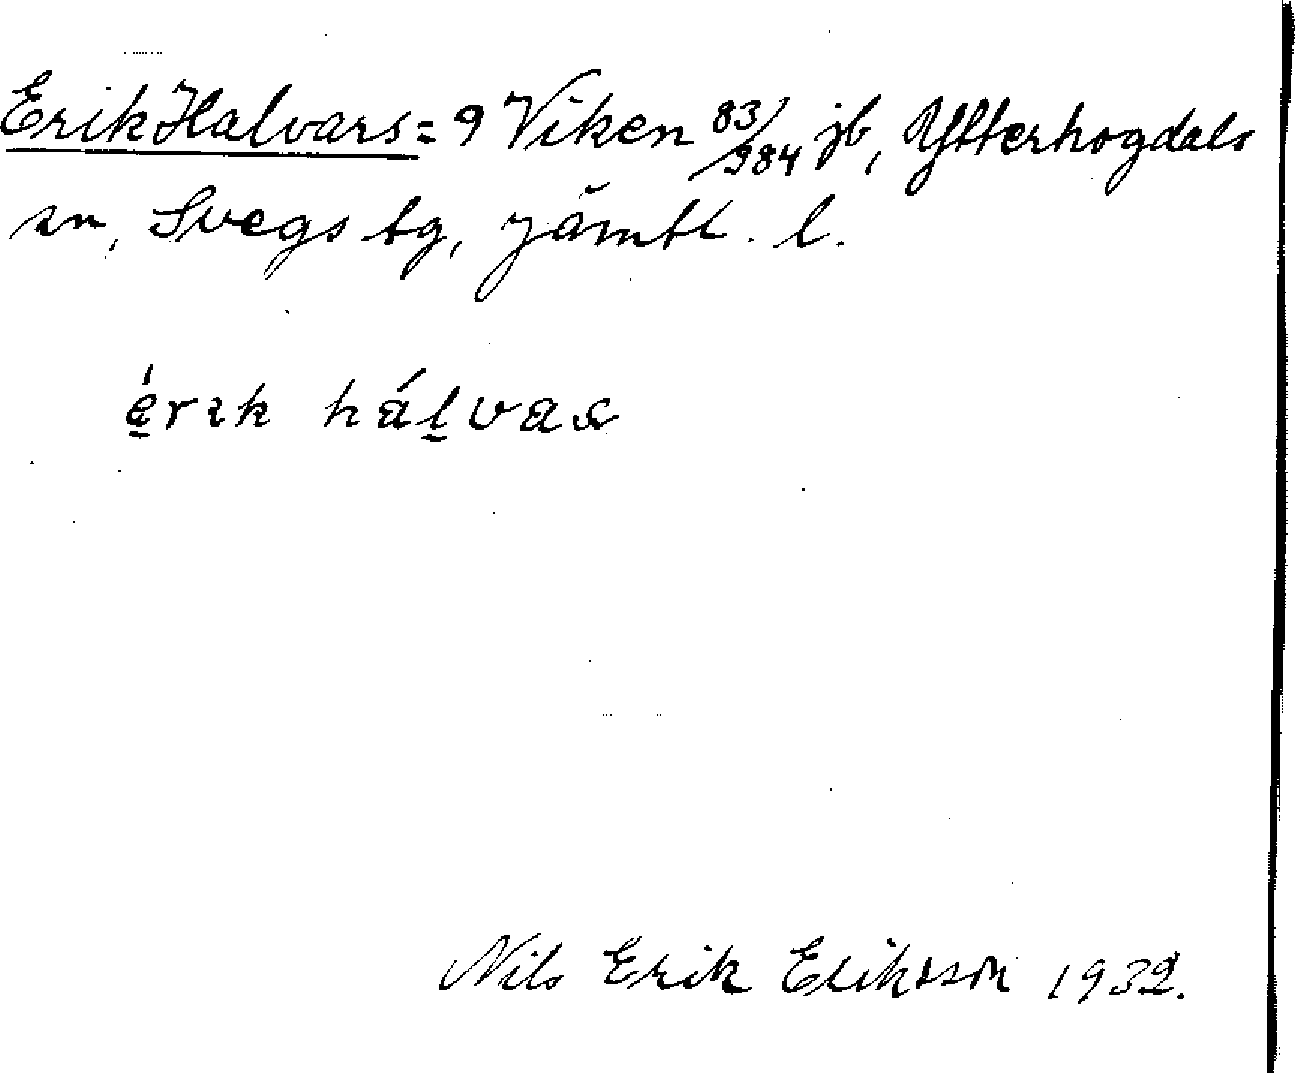 Erik Halvars = 9 Viken 83/984 jb, Ytterhogdals
sn, Svegs tg, Jämtl. l.
é̱rɩk háḻvaʂ
Nils Erik Eriksson 1932.